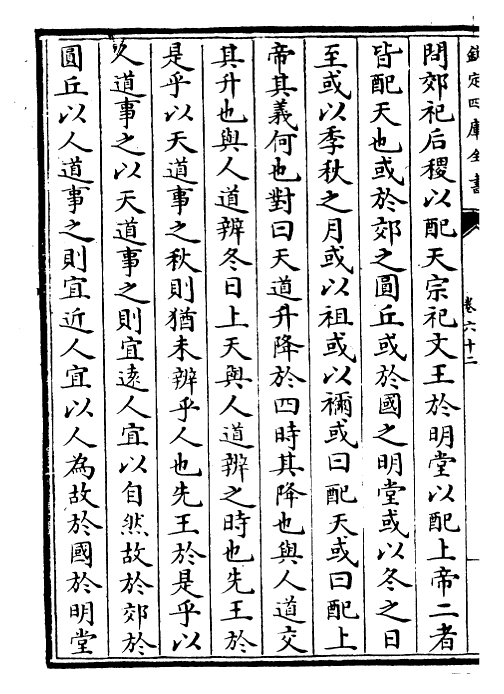 欽定四庫全書
卷六十二
問郊祀后稷以配天宗祀文王於明堂以配上帝二者
皆配天也或於郊之圓丘或於國之明堂或以冬之日
至或以季秋之月或以祖或以禰或曰配天或曰配上
帝其義何也對曰天道升降於四時其降也與人道交
其升也與人道辨冬日上天與人道辨之時也先王於
是乎以天道事之秋則猶未辨乎人也先王於是乎以
人道事之以天道事之則宜逺人宜以自然故於郊於
圓丘以人道事之則宜近人宜以人為故於國於明堂